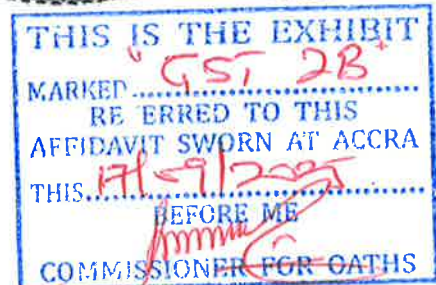 THIS IS THE EXHIBIT
MARKED "GST 2B"
RE ERRED TO THIS
AFFIDAVIT SWORN AT ACCRA
THIS 17/09/2025
BEFORE ME
COMMISSIONER FOR OATHS